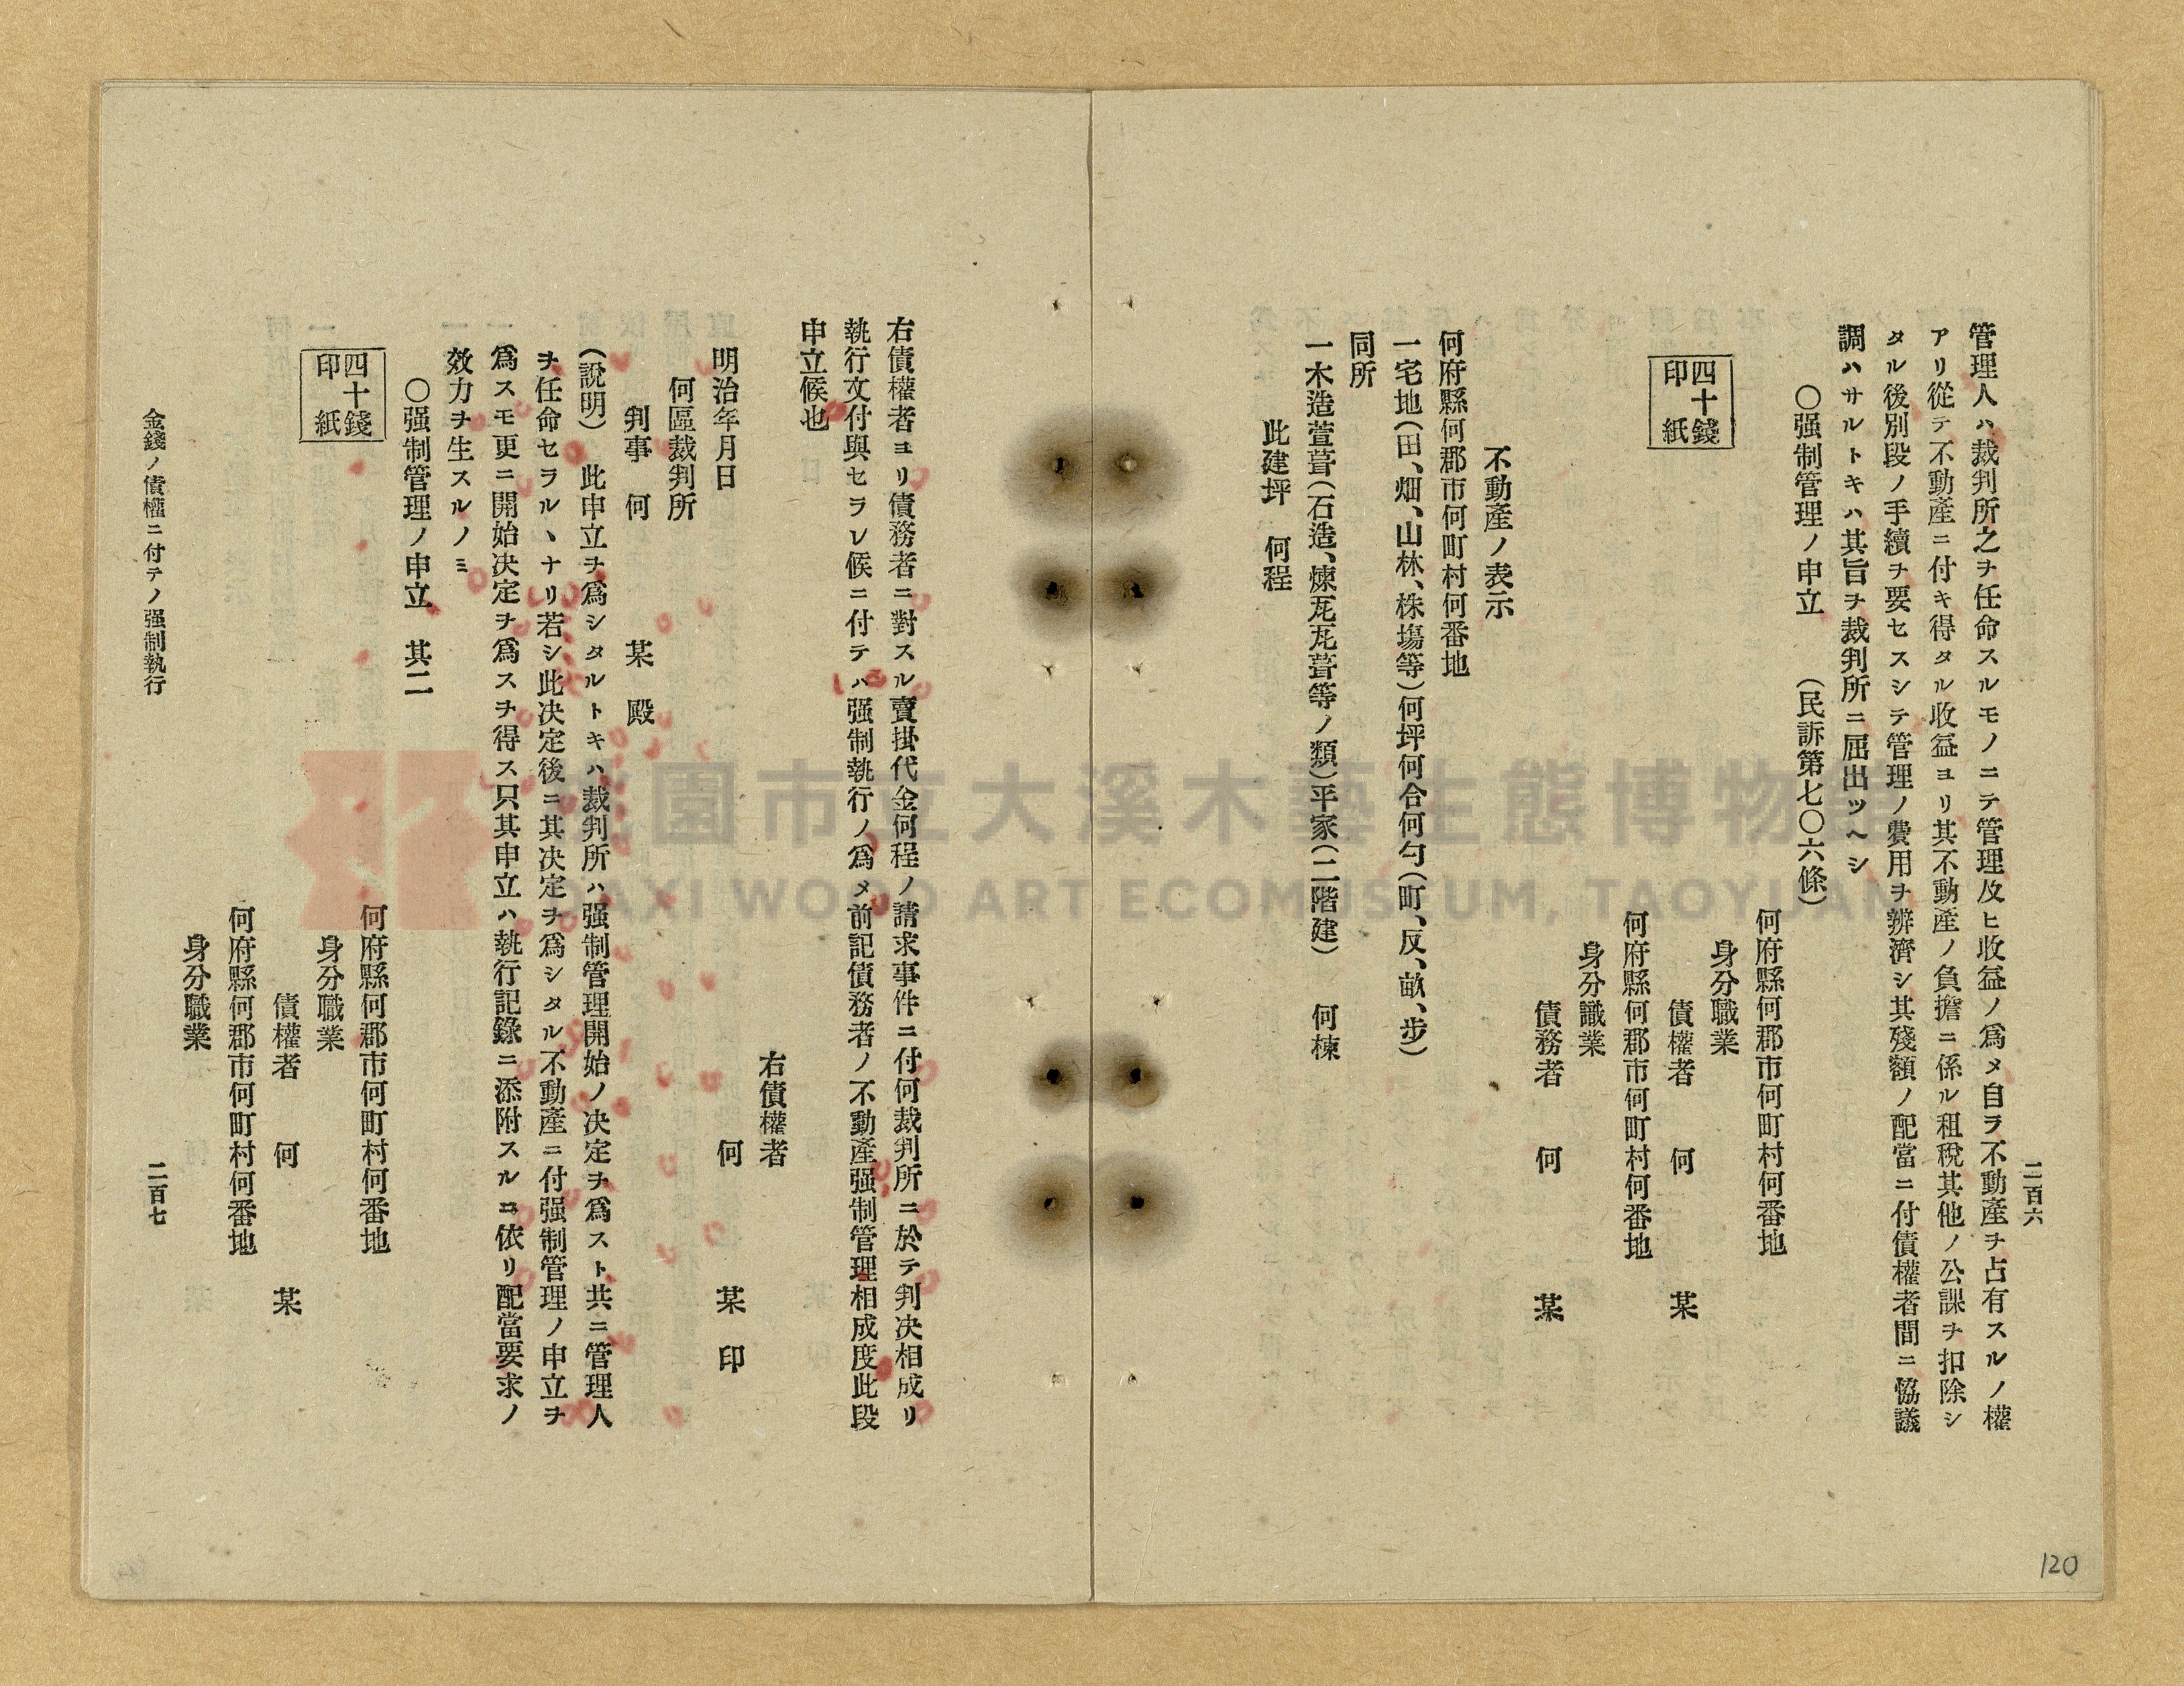 二百六
管理人ハ裁判所之ヲ任命スルモノニテ管理及ヒ收益ノ爲メ自ラ不動產ヲ占有スルノ權
アリ從テ不動產ニ付キ得タル收益ヨリ其不動產ノ負擔ニ係ル租稅其他ノ公課ヲ扣除シ
タル後別段ノ手續ヲ要セスシテ管理ノ費用ヲ辨濟シ其殘額ノ配當ニ付債權者間ニ恊議
調ハサルトキハ其旨ヲ裁判所ニ屆出ツヘシ
〇强制管理ノ申立 (民訴第七〇六條)
何府縣何郡市何町村何番地
身分職業
四十錢
印紙
債權者 何 某
何府縣何郡市何町村何番地
身分識業
債務者 何 某
不動產ノ表示
何府縣何郡市何町村何番地
一宅地(田、畑、山林、株塲等)何坪何合何勺(町、反、畝、步)
同所
一木造萱葺(石造、煉瓦瓦葺等ノ類)平家(二階建) 何棟
此建坪 何程
右債權者ヨリ債務者ニ對スル賣掛代金何程ノ請求事件ニ付何裁判所ニ於テ判决相成リ
執行文付與セラレ候ニ付テハ强制執行ノ爲メ前記債務者ノ不動產强制管理相成度此段
申立候也
右債權者
明治年月日 何 某 印
何區裁判所
判事 何 某 殿
(說明) 此申立ヲ爲シタルトキハ裁判所ハ强制管理開始ノ决定ヲ爲スト共ニ管理人
ヲ任命セラルヽナリ若シ此决定後ニ其决定ヲ爲シタル不動產ニ付强制管理ノ申立ヲ
爲スモ更ニ開始决定ヲ爲スヲ得ス只其申立ハ執行記錄ニ添附スルニ依リ配當要求ノ
效力ヲ生スルノミ
〇强制管理ノ申立 其二
何府縣何郡市何町村何番地
四十錢
印紙
身分職業
債權者 何 某
何府縣何郡市何町村何番地
身分職業
金錢ノ債權ニ付テノ强制執行 二百七
120
桃園市立大溪木藝生態博物館
DAXI WOOD ART ECOMUSEUM, TAOYUAN